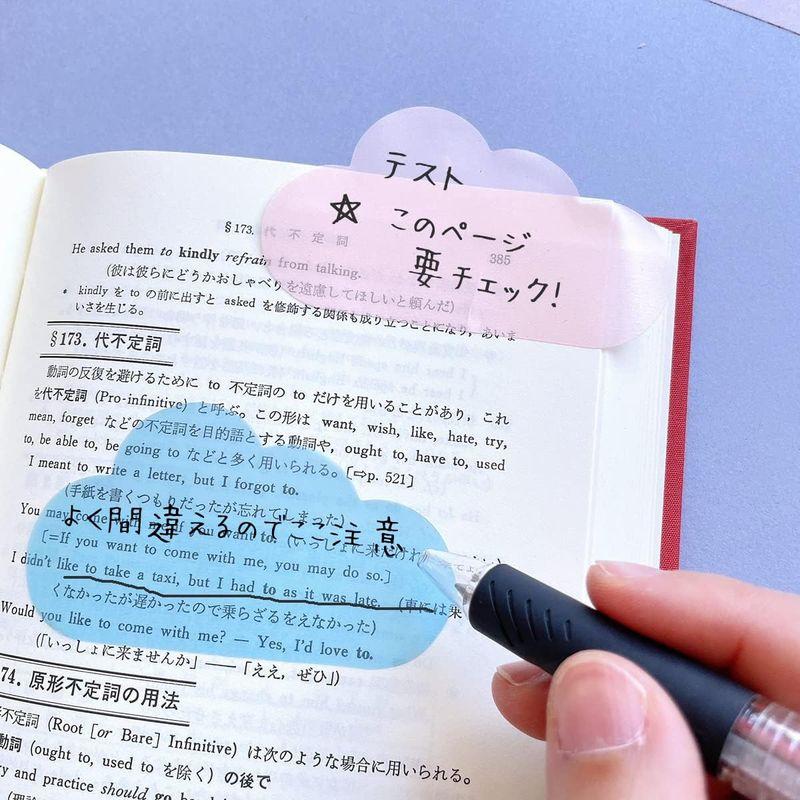 テスト
☆ このページ
要チェック!
§173. 代不定詞 385
He asked them to kindly refrain from talking.
(彼は彼らにどうかおしゃべりを遠慮してほしいと頼んだ)
* kindly を to の前に出すと asked を修飾する関係も成り立つことになり,あいま
いさを生じる。
§173. 代不定詞
動詞の反復を避けるために to 不定詞の to だけを用いることがあり,これ
を代不定詞 (Pro-infinitive) と呼ぶ。この形は want, wish, like, hate, try,
mean, forget などの不定詞を目的語とする動詞や, ought to, have to, used
to, be able to, be going to などと多く用いられる。[⇨p. 521]
I meant to write a letter, but I forgot to.
(手紙を書くつもりだったが忘れてしまった)
よく間違えるのでここ注意
You may come with me if you want to. (いっしょに来たければ
[=If you want to come with me, you may do so.]
I didn't like to take a taxi, but I had to as it was late. (車には乗
くなかったが遅かったので乗らざるをえなかった)
Would you like to come with me? — Yes, I'd love to.
(「いっしょに来ませんか」——「ええ,ぜひ」)
74. 原形不定詞の用法
不定詞 (Root [or Bare] Infinitive) は次のような場合に用いられる。
動詞 (ought to, used to を除く) の後で
and practice should go